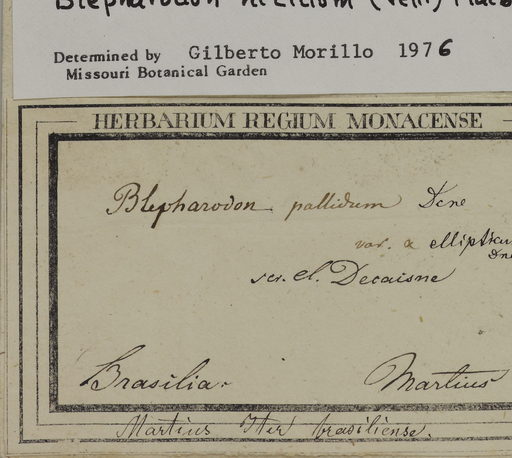 Blepharodon nitidum (Vell) Macb
Determined by Gilberto Morillo 1976
Missouri Botanical Garden
HERBARIUM REGIUM MONACENSE
Blepharodon pallidum Dcne
var. α ellipticum
Dne
scr. cl. Decaisne
Brasilia. Martius
Martius Iter brasiliense.